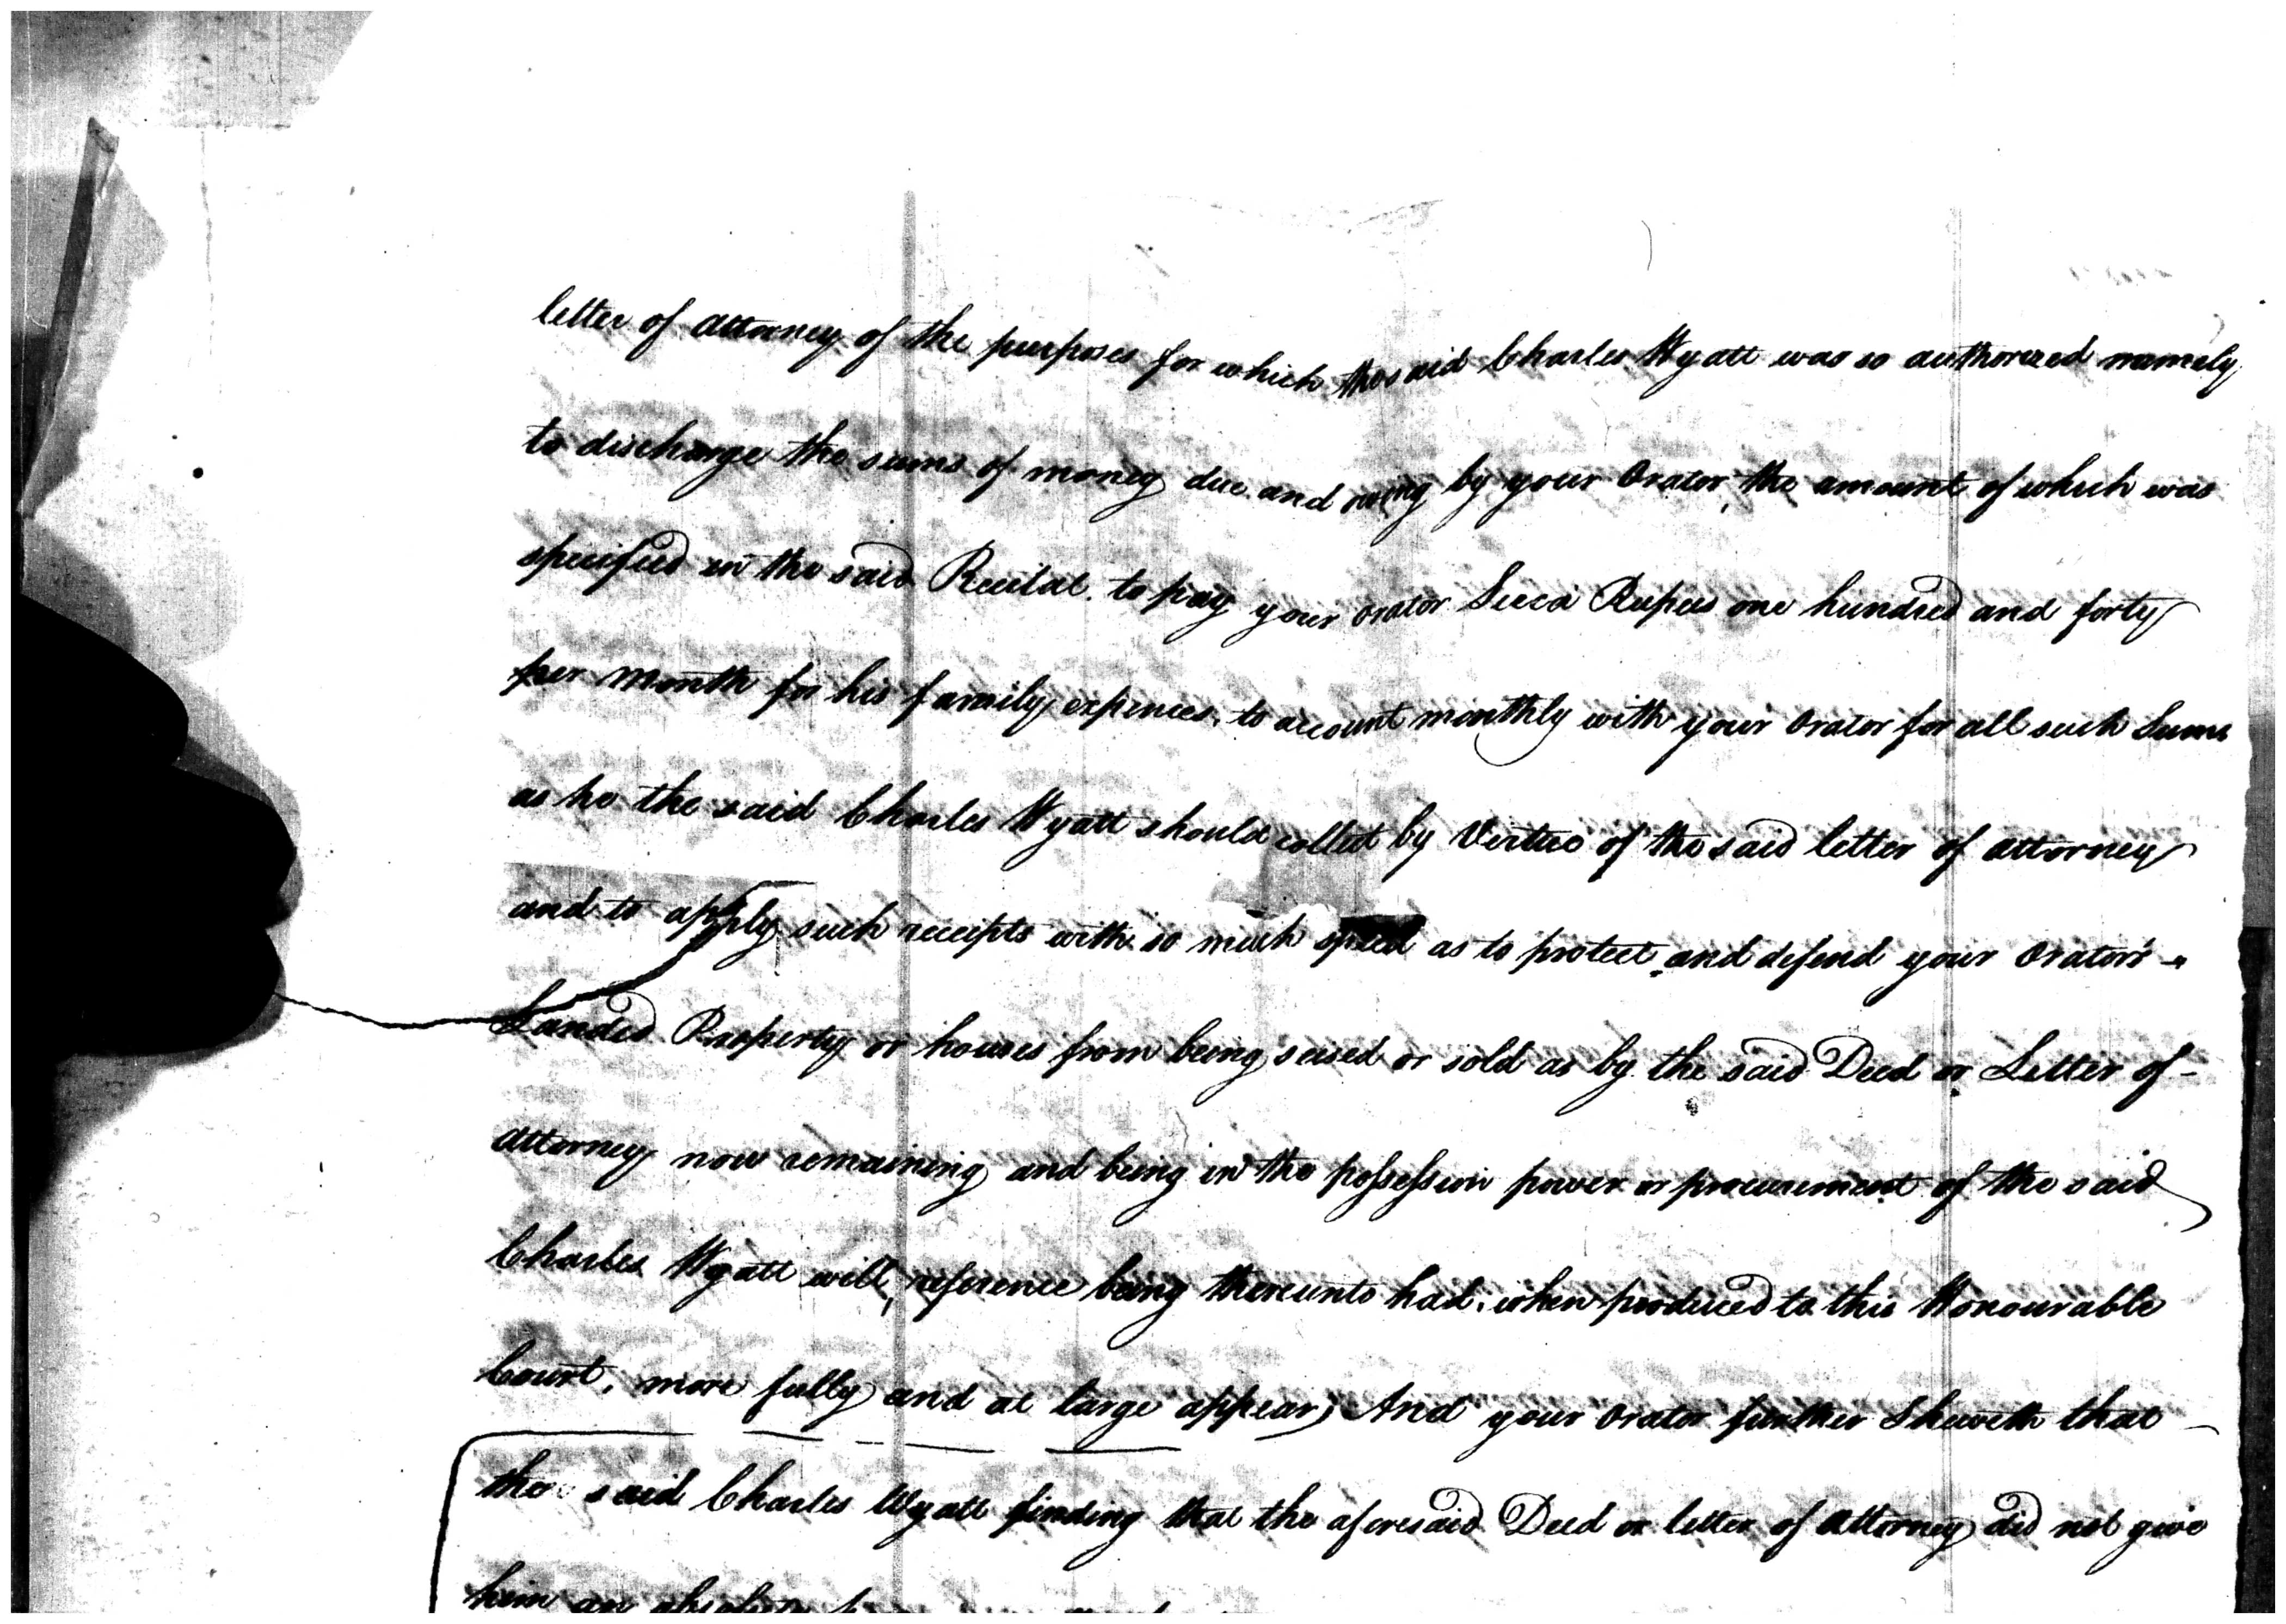 letter of attorney of the purposes for which the said Charles Wyatt was so authorized namely
to discharge the sums of money due and owing by your Orator, the amount of which was
specified in the said Recital. to pay your orator Sicca Rupees one hundred and forty
per month for his family expences, to account monthly with your Orator for all such Sums
as he the said Charles Wyatt should collect by Virtue of the said letter of attorney
and to apply such receipts with so much speed as to protect and defend your Orator's -
Landed Property or houses from being seised or sold as by the said Deed or Letter of -
attorney now remaining and being in the possession power or procurement of the said
Charles Wyatt will, reference being thereunto had, when produced to this Honourable
Court, more fully and at large appear, And your Orator further Sheweth that -
the said Charles Wyatt finding that the aforesaid Deed or letter of attorney did not give
him an absolute